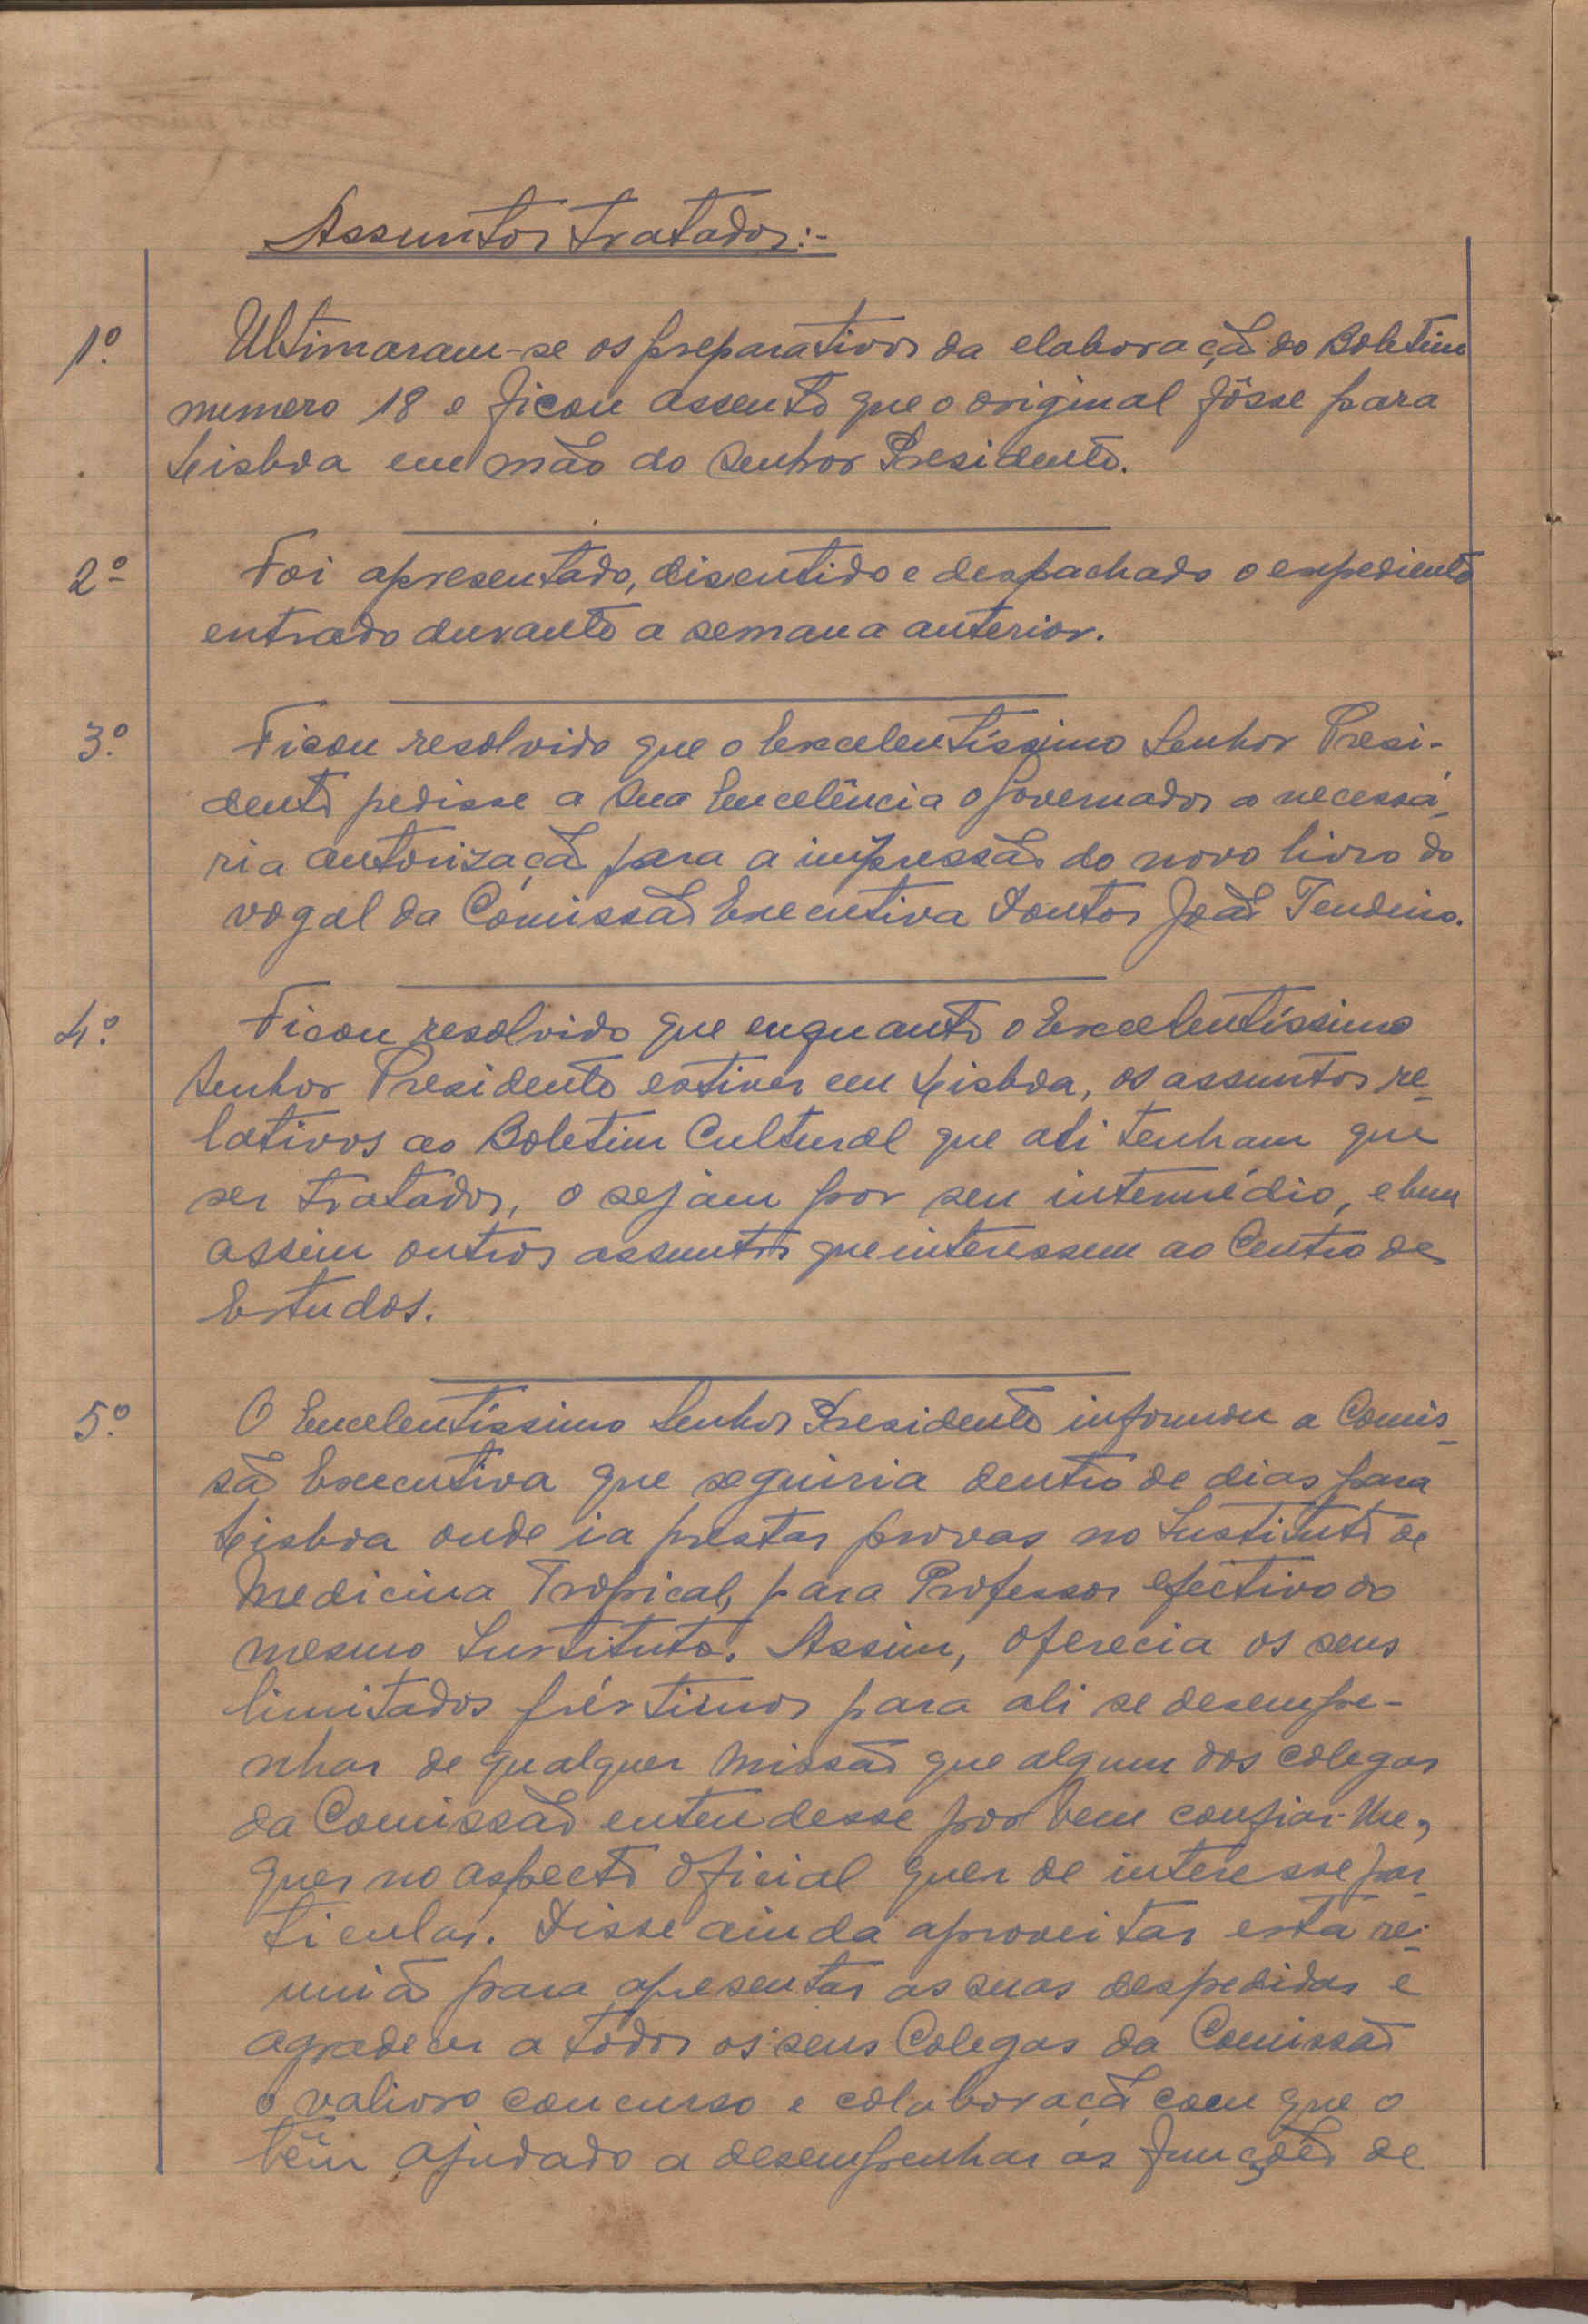 Assuntos tratados:-
1º. Ultimaram-se os preparativos da elaboração do Boletim
numero 18 e ficou assente que o original fôsse para
Lisboa em mão do Senhor Presidente.
2º Foi apresentado, discutido e despachado o expediente
entrado durante a semana anterior.
3º. Ficou resolvido que o Excelentíssimo Senhor Presi-
dente pedisse a Sua Excelência o Governador a necessá-
ria autorização para a impressão do novo livro do
vogal da Comissão Executiva Doutor João Tendeiro.
4º. Ficou resolvido que enquanto o Excelentíssimo
Senhor Presidente estiver em Lisboa, os assuntos re-
lativos ao Boletim Cultural que ali tenham que
ser tratados, o sejam por seu intermédio, e bem
assim outros assuntos que interessem ao Centro de
Estudos.
5º. O Excelentíssimo Senhor Presidente informou a Comis-
são Executiva que seguiria dentro de dias para
Lisboa onde ia prestar provas no Instituto de
Medicina Tropical, para Professor efectivo do
mesmo Instituto. Assim, oferecia os seus
limitados préstimos para ali se desempe-
nhar de qualquer missão que algum dos colegas
da Comissão entendesse por bem confiar-lhe,
quer no aspecto oficial quer de interesse par-
ticular. Disse ainda aproveitar esta re-
união para apresentar as suas despedidas e
agradecer a todos os seus Colegas da Comissão
o valioso concurso e colaboração com que o
têm ajudado a desempenhar as funções de